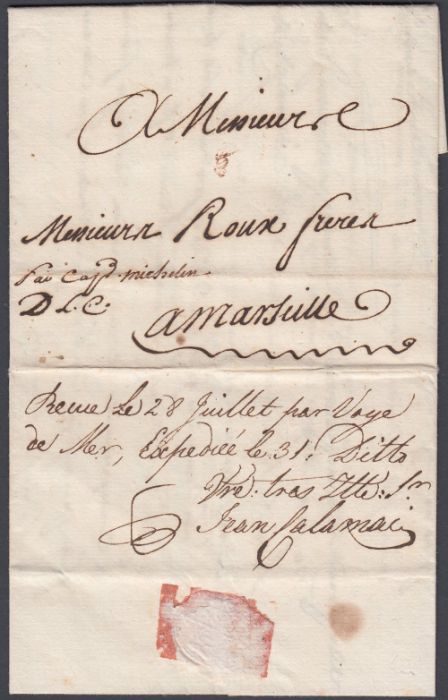 A Messieurs
Messieurs Roux freres
Par Capn. michelin
D L. C.
a marseille
Recue Le 28 Juillet par Voye
de Mer, Expediée le 31. Ditto
Vre: tres Hble: Sr
Jean Calamai